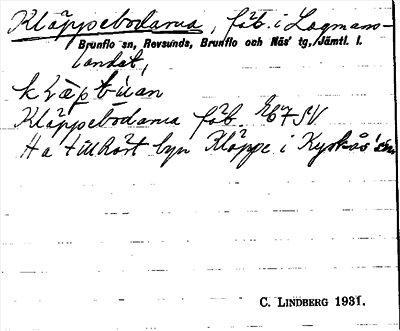 Kläppebodarna, fäb. i Lagmans-
Brunflo sn, Revsunds, Brunflo och Näs' tg, Jämtl. l.
landet,
Kläppebodarna fäb. EC7SV
Ha tillhört byn Kläppe i Kyrkås sn
C. LINDBERG 1931.